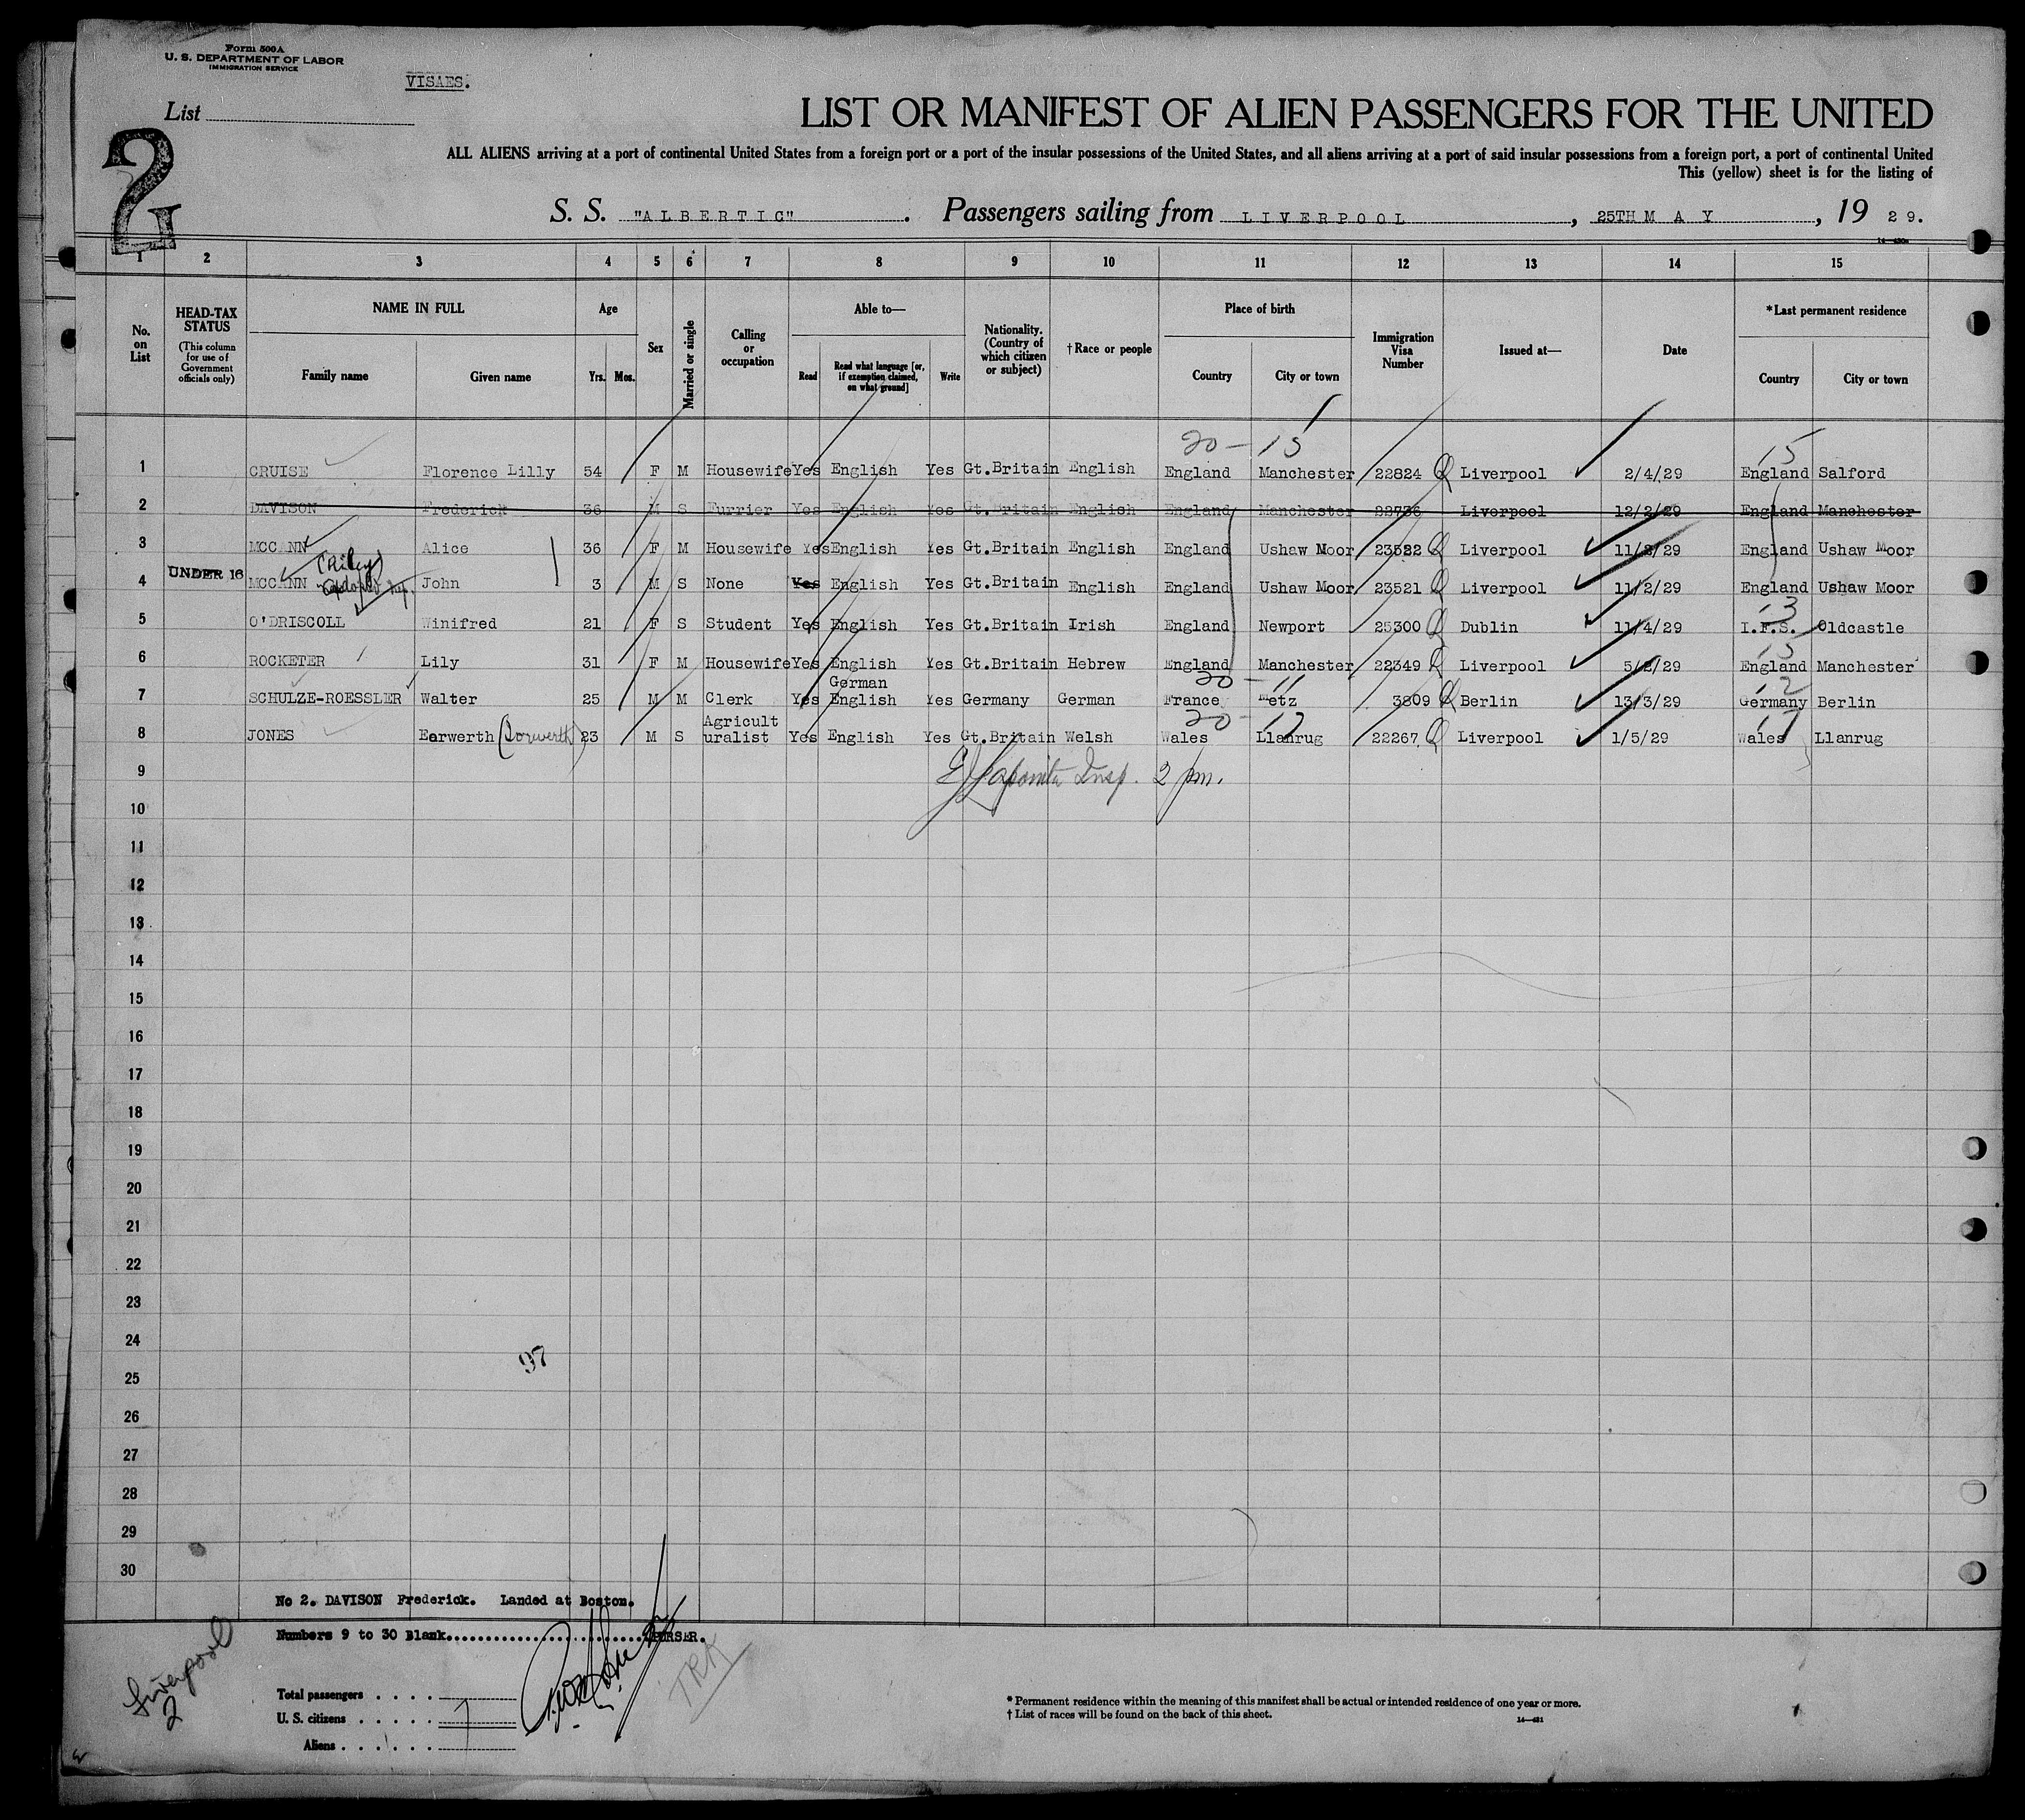 Form 500A
U. S. DEPARTMENT OF LABOR
IMMIGRATION SERVICE
VISAES.
List
2
LIST OR MANIFEST OF ALIEN PASSENGERS FOR THE UNITED
ALL ALIENS arriving at a port of continental United States from a foreign port or a port of the insular possessions of the United States, and all aliens arriving at a port of said insular possessions from a foreign port, a port of continental United
This (yellow) sheet is for the listing of
S. S. "ALBERTIC". Passengers sailing from LIVERPOOL, 25TH MAY, 19 29.
1 2 3 4 5 6 7 8 9 10 11 12 13 14 15
No. on List
HEAD-TAX STATUS (This column for use of Government officials only)
NAME IN FULL Family name Given name
Age Yrs. Mos.
Sex
Married or single
Calling or occupation
Able to— Read Read what language [or, if exemption claimed, on what ground] Write
Nationality. (Country of which citizen or subject)
†Race or people
Place of birth Country City or town
Immigration Visa Number
Issued at—
Date
*Last permanent residence Country City or town
20-15 15
1 CRUISE Florence Lilly 54 F M Housewife Yes English Yes Gt.Britain English England Manchester 22824 Liverpool 2/4/29 England Salford
2 DAVISON Frederick 36 M S Furrier Yes English Yes Gt.Britain English England Manchester Liverpool 12/2/29 England Manchester
3 MCCANN Alice 36 F M Housewife Yes English Yes Gt.Britain English England Ushaw Moor 23522 Liverpool 11/2/29 England Ushaw Moor
(Riley)
UNDER 16
4 MCCANN John 3 M S None Yes English Yes Gt.Britain English England Ushaw Moor 23521 Liverpool 11/2/29 England Ushaw Moor
13
5 O'DRISCOLL Winifred 21 F S Student Yes English Yes Gt.Britain Irish England Newport 25300 Dublin 11/4/29 I.F.S. Oldcastle
15
6 ROCKETER Lily 31 F M Housewife Yes English Yes Gt.Britain Hebrew England Manchester 22349 Liverpool 5/2/29 England Manchester
20-11 12
7 SCHULZE-ROESSLER Walter 25 M M Clerk Yes German English Yes Germany German France Metz 3809 Berlin 13/3/29 Germany Berlin
20-17 17
8 JONES Earwerth (Iorwerth) 23 M S Agricult uralist Yes English Yes Gt.Britain Welsh Wales Llanrug 22267 Liverpool 1/5/29 Wales Llanrug
9 Insp. 2 pm.
10
11
12
13
14
15
16
17
18
19
20
21
22
23
24
97
25
26
27
28
29
30
No 2. DAVISON Frederick. Landed at Boston.
Numbers 9 to 30 Blank. PURSER.
Liverpool
2
TRK
Total passengers
U. S. citizens
7
Aliens
* Permanent residence within the meaning of this manifest shall be actual or intended residence of one year or more.
† List of races will be found on the back of this sheet.